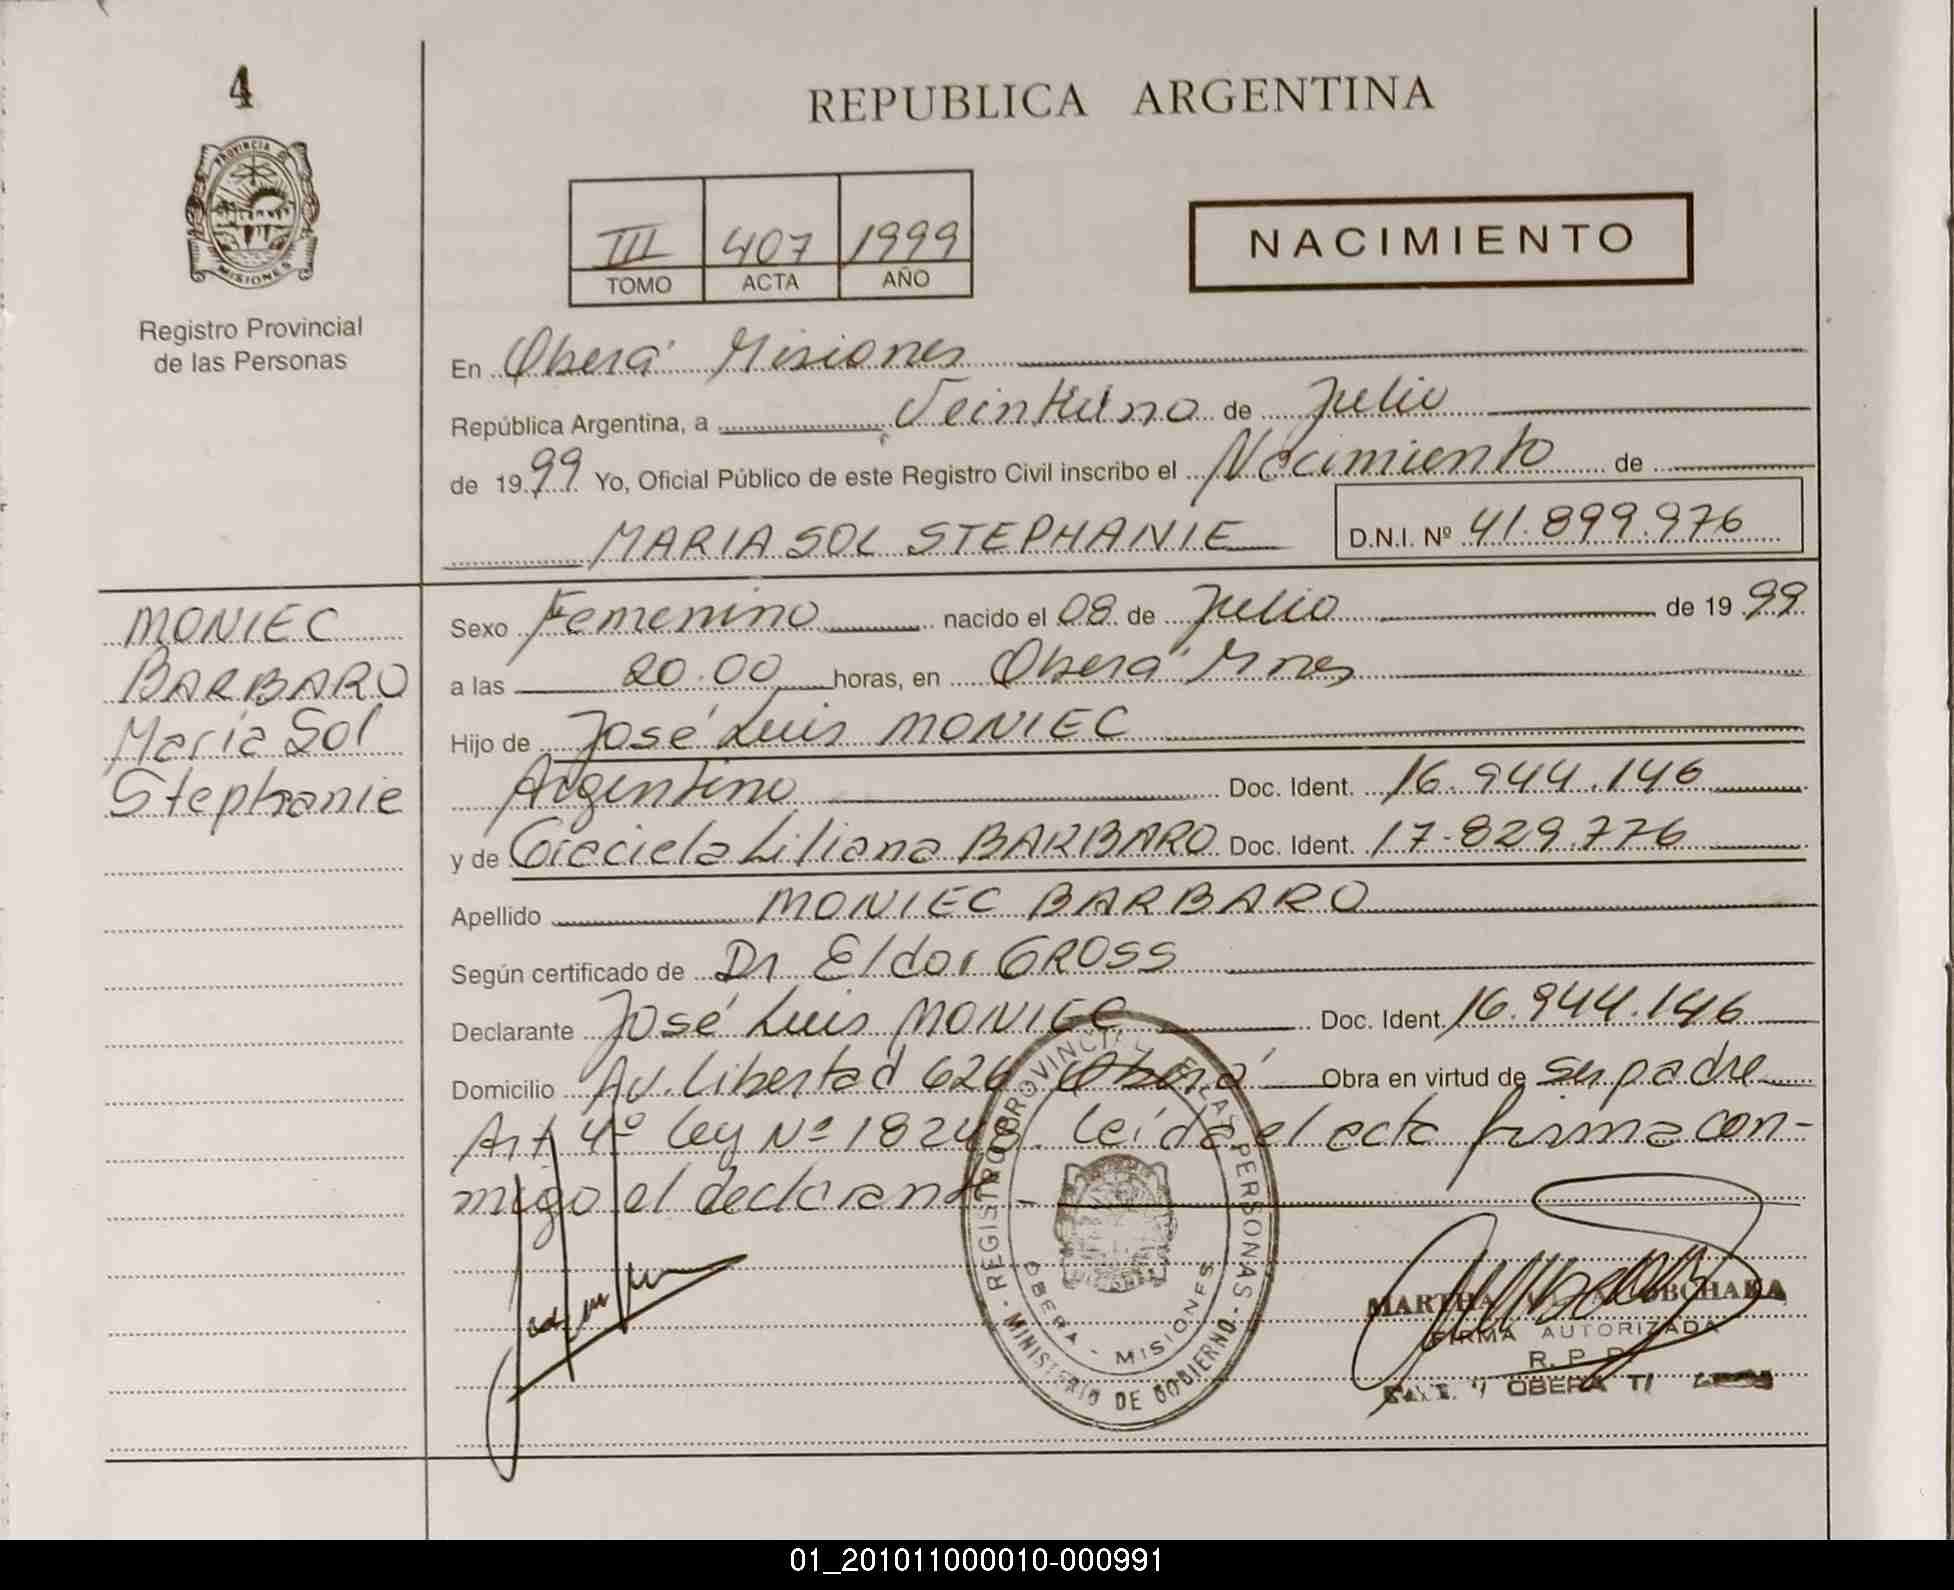 4
REPUBLICA ARGENTINA
PROVINCIA DE
MISIONES
III 407 1999
TOMO ACTA AÑO
NACIMIENTO
Registro Provincial
de las Personas
En Oberá Misiones
República Argentina, a Veintiuno de Julio
de 1999 Yo, Oficial Público de este Registro Civil inscribo el Nacimiento de
MARIA SOL STEPHANIE D.N.I. Nº 41.899.976
MONIEC
BARBARO
María Sol
Stephanie
Sexo Femenino nacido el 08 de Julio de 1999
a las 20.00 horas, en Oberá Mnes
Hijo de José Luis MONIEC
Argentino Doc. Ident. 16.944.146
y de Graciela Liliana BARBARO Doc. Ident. 17.829.776
Apellido MONIEC BARBARO
Según certificado de Dr Eldor GROSS
Declarante José Luis MONIEC Doc. Ident. 16.944.146
Domicilio Av. Libertad 626 Oberá Obra en virtud de ser padre
Art 4º ley Nº 18248. Leída el acta firma con-
migo el declarante
REGISTRO PROVINCIAL DE LAS PERSONAS
OBERA - MISIONES
MINISTERIO DE GOBIERNO
MARTHA
FIRMA AUTORIZADA
R. P. P.
OBERA
01_201011000010-000991